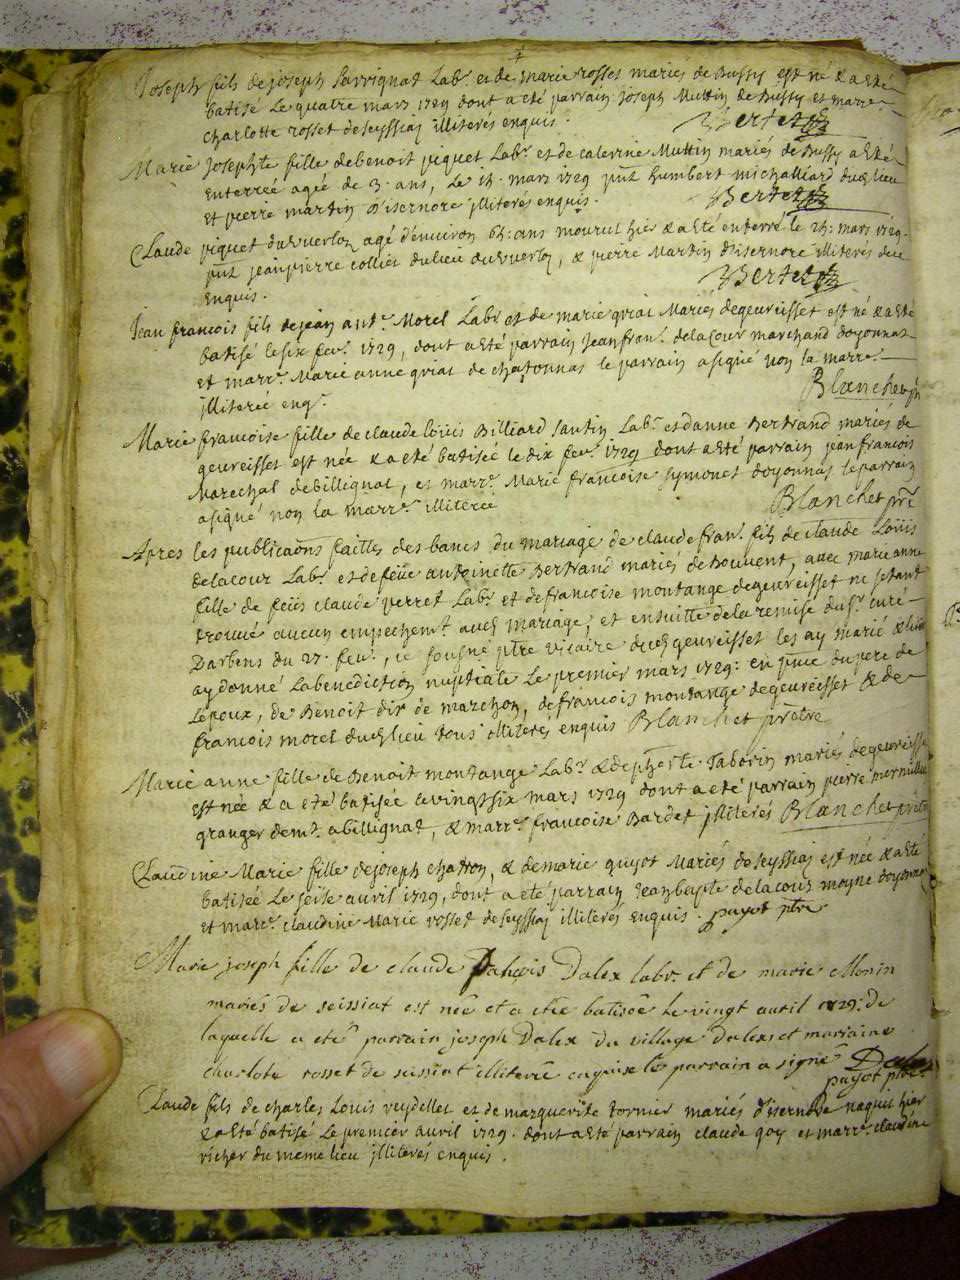 Joseph fils de joseph Savrignat Labr. et de marie rosset mariés de Bussy est né & a été
batisé Le quatre mars 1729 dont a eté parrain joseph Muttin de Bussy et marre
charlotte rosset de seyssiaj illiterés enquis. Bertet
Marie Josephte fille de benoit piquet Labr. et de caterine Muttin mariés de Bussy a eté
enterrée agée de 3. ans, Le mars 1729 pnt humbert michalliard dud lieu
et pierre martin d'isernore illiterés enquis. Bertet
Claude piquet duverloz agé d'environ ans mourut hier & a eté enterré le mars 1729.
pnt jean pierre collies du lieu duverloz, & pierre Martin d'isernore illiterés de ce
enquis. Bertet
Jean francois fils de jean antr. Morel Labr. et de marie griat Mariés de geureisset est né & a eté
batisé le six fevr. 1729, dont a eté parrain jean fran. delacour marchand doyonnat
et marre. Marie anne griat de chatonnas le parrain a signé non la marre.
illiterée enq. Blanchet ptr
Marie francoise fille de claude loüis Billiard santin Labr. et danne Bertrand mariés de
geureisset est née & a eté batisée le dix fevr. 1729 dont a eté parrain jean francois
Marechal de billignat, et marre. Marie francoise symonet doyonnas le parrain
a signé non la marre. illiterée Blanchet ptr
Apres les publicaons faittes des bans du mariage de claude fran. fils de claude Loüis
delacour Labr. et de feüe antoinette Bertrand mariés de bouvent, avec marie anne
fille de feüs claude perret Labr. et de francoise montange de geureisset ne setant
trouué aucun empechemt. aud mariage; et ensuitte de la remise du sr. curé
Darbens du 27. fevr., je sousné ptre vicaire dud geureisset les ay marié & leur
ay donné La benediction nuptiale Le premier mars 1729: en pnce du pere de
Lepoux, de Benoit dit de marchon, de francois montange de geureisset & de
francois morel dud lieu tous illiterés enquis Blanchet prêtre
Marie anne fille de Benoit montange Labr. & de pherte Taborin mariés de geureisset
est née & a eté batisée le vingt six mars 1729 dont a eté parrain pierre
granger demt. a billignat, & marre. francoise Bardet illiterés Blanchet prêtre
Claudine Marie fille de joseph chatron, & de marie guyot Mariés de seyssiaj est née & a eté
batisée Le seise avril 1729, dont a eté parrain Jean bapte delacour moyne doyonnas
et marre. claudine Marie rosset de seyssiaj illiterés enquis. payot ptre
Marie joseph fille de claude francois Dalex labr. et de marie Monin
mariés de seissiat est née et a étée batisée Le vingt avril 1729: de
laquelle a eté parrain joseph Dalex du village dalex et marraine
charlote rosset de seissiat illiterée enquise le parrain a signé Dalex
payot ptre
Claude fils de charles Louis reydellet et de marguerite tornier mariés d'isernore naquit hier
& a eté batisé Le premier avril 1729. dont a eté parrain claude goy et marre. claudine
richer du meme lieu illiterés enquis.